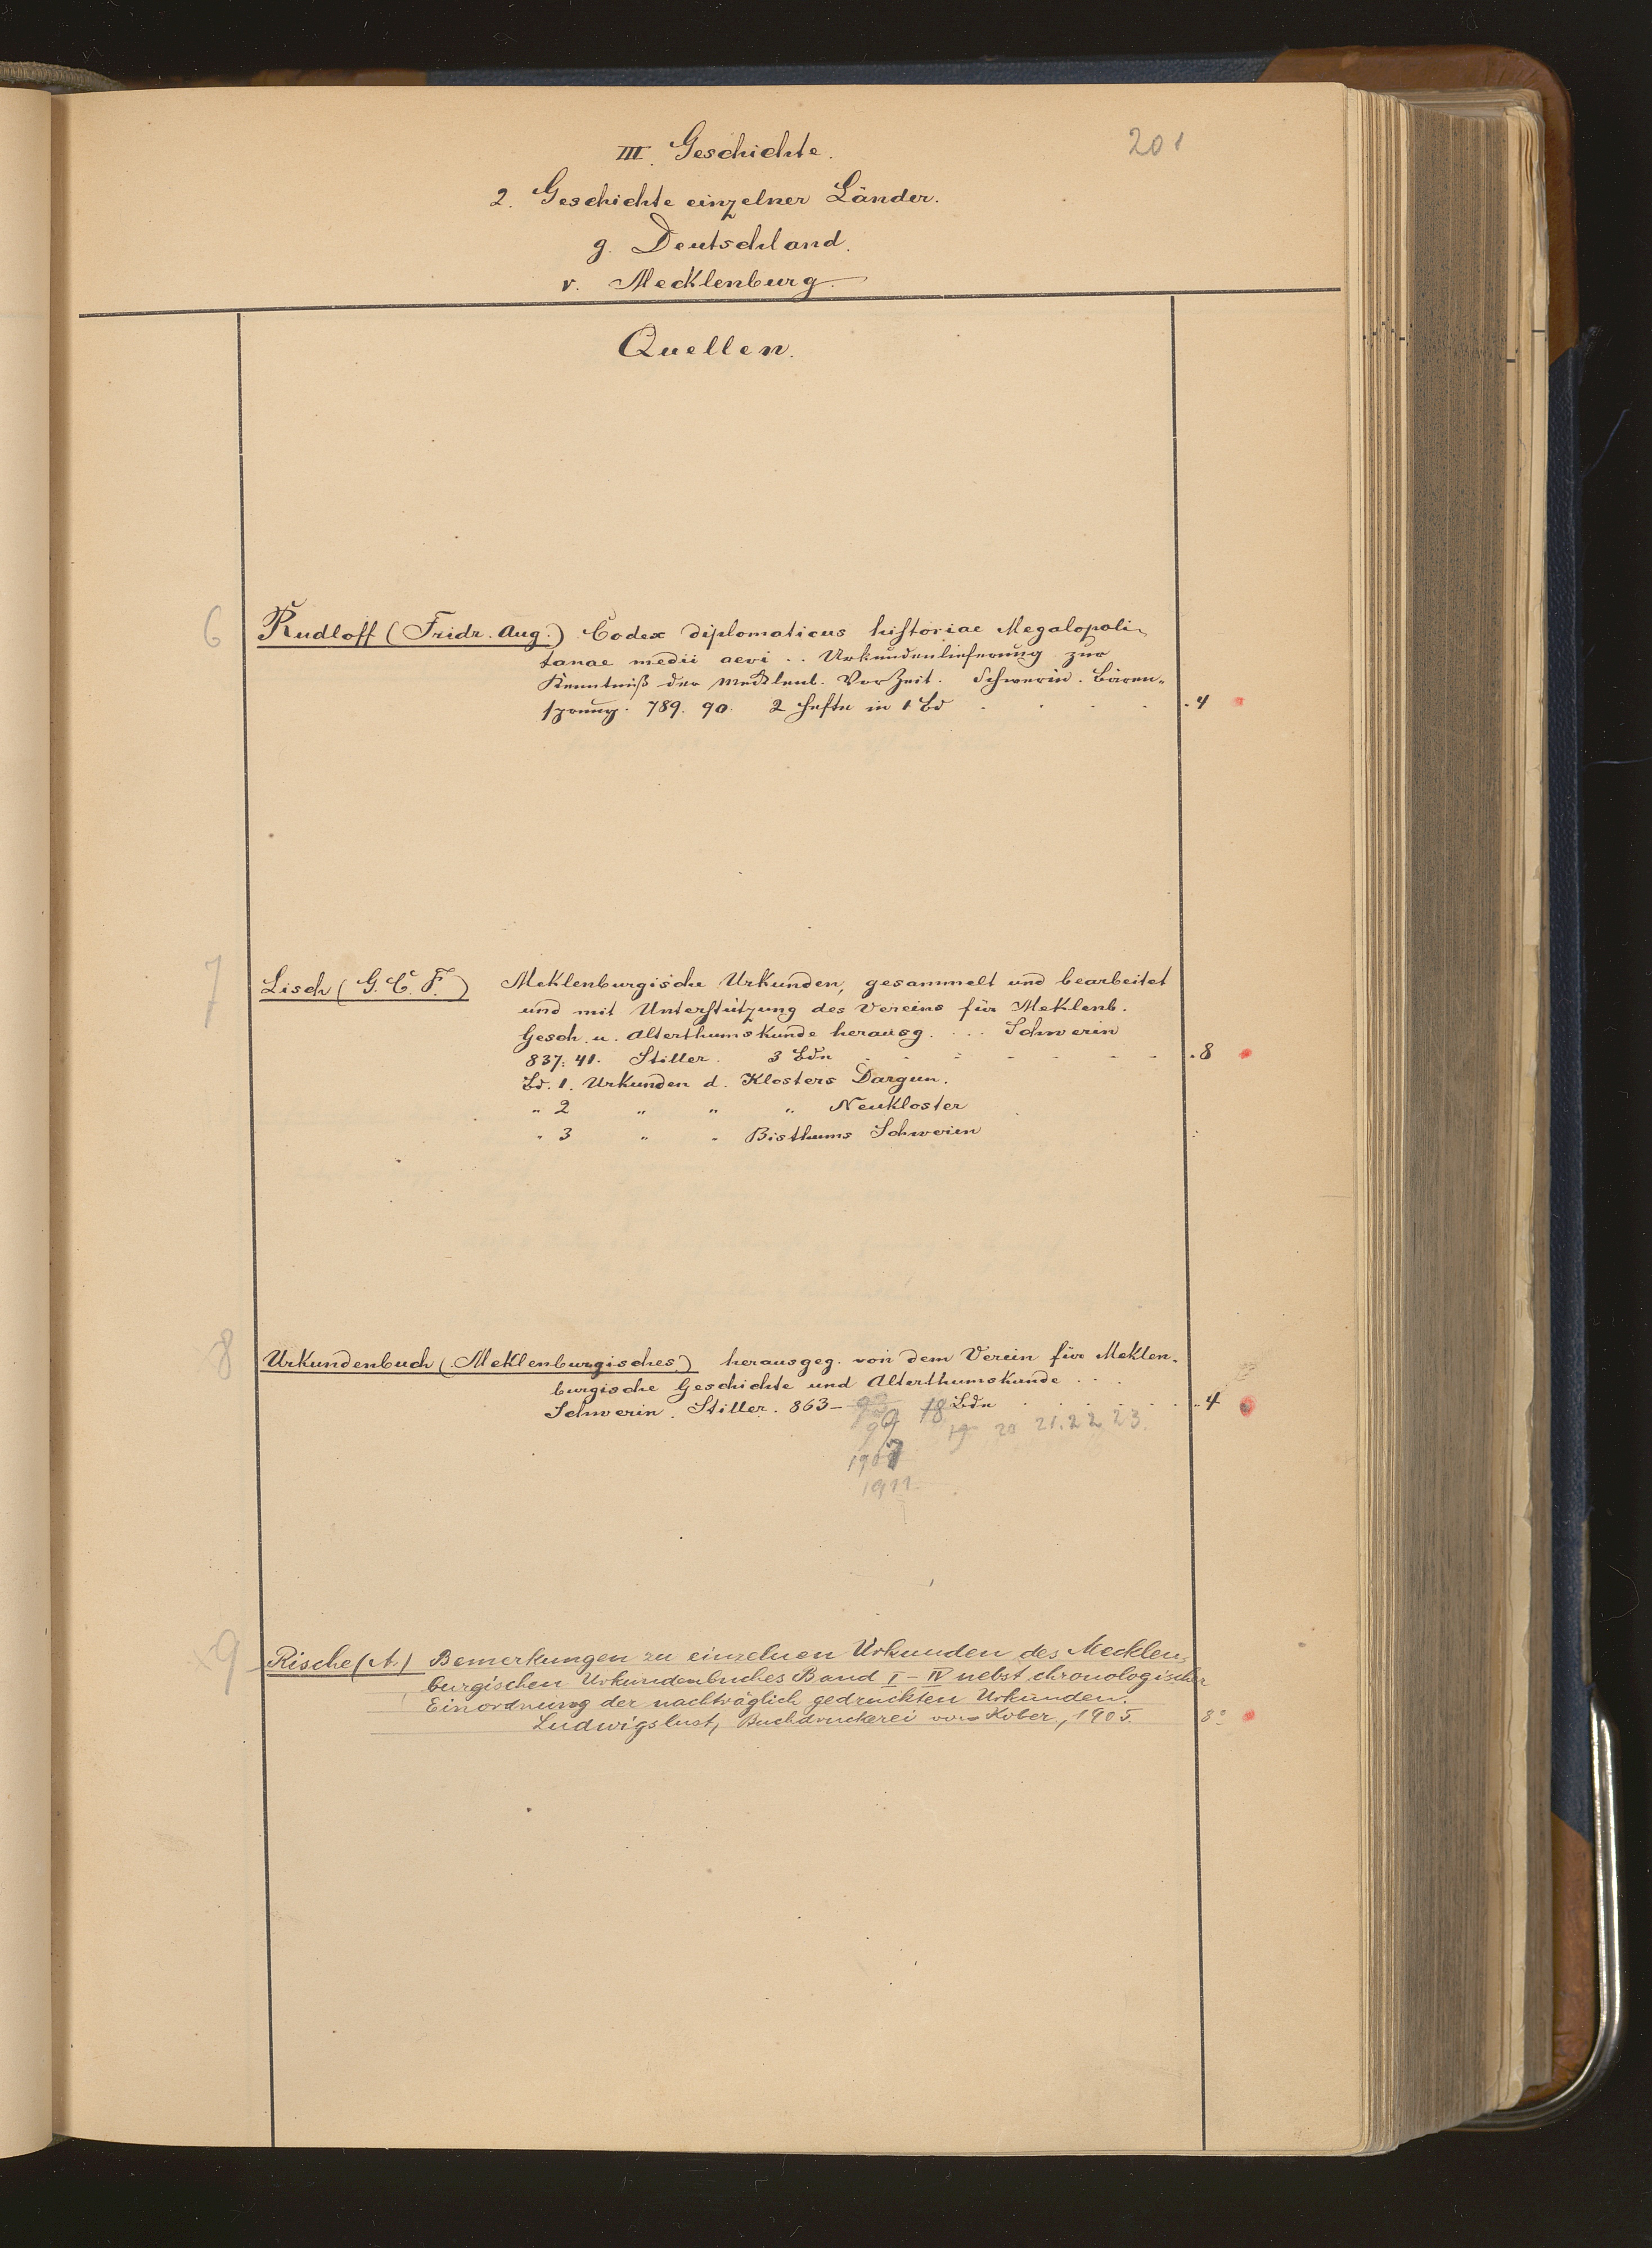 201
III. Geschichte.
2. Geschichte einzelner Länder.
g. Deutschland.
v. Mecklenburg.
Quellen.
6
Rudloff (Fridr. Aug.) Codex diplomaticus historiae Megalopoli-
tanae medii aevi .. Urkundenlieferung zur
Kenntniß der Mecklenb. Vorzeit. Schwerin. Bären-
sprung. 789. 90. 2 Hefte in 1 Bd . . . . . 4
7
Lisch (G. C. F.) Meklenburgische Urkunden, gesammelt und bearbeitet
und mit Unterstützung des Vereins für Meklenb.
Gesch. u. Alterthumskunde herausg. ... Schwerin
837-41. Stiller. 3 Bde - - - - - - - . 8
Bd. 1. Urkunden d. Klosters Dargun.
" 2 " " " Neukloster
" 3 " " Bisthums Schwerin
8
Urkundenbuch (Meklenburgisches) herausgeg. von dem Verein für Meklen-
burgische Geschichte und Alterthumskunde ...
Schwerin. Stiller. 863- 18 Bde . . . . . . 4
19 20 21. 22 23.
1907
1911.
9
Rische (A.) Bemerkungen zu einzelnen Urkunden des Mecklen-
burgischen Urkundenbuches Band I-IV nebst chronologischer
Einordnung der nachträglich gedruckten Urkunden.
Ludwigslust, Buchdruckerei von Kober, 1905. 8°